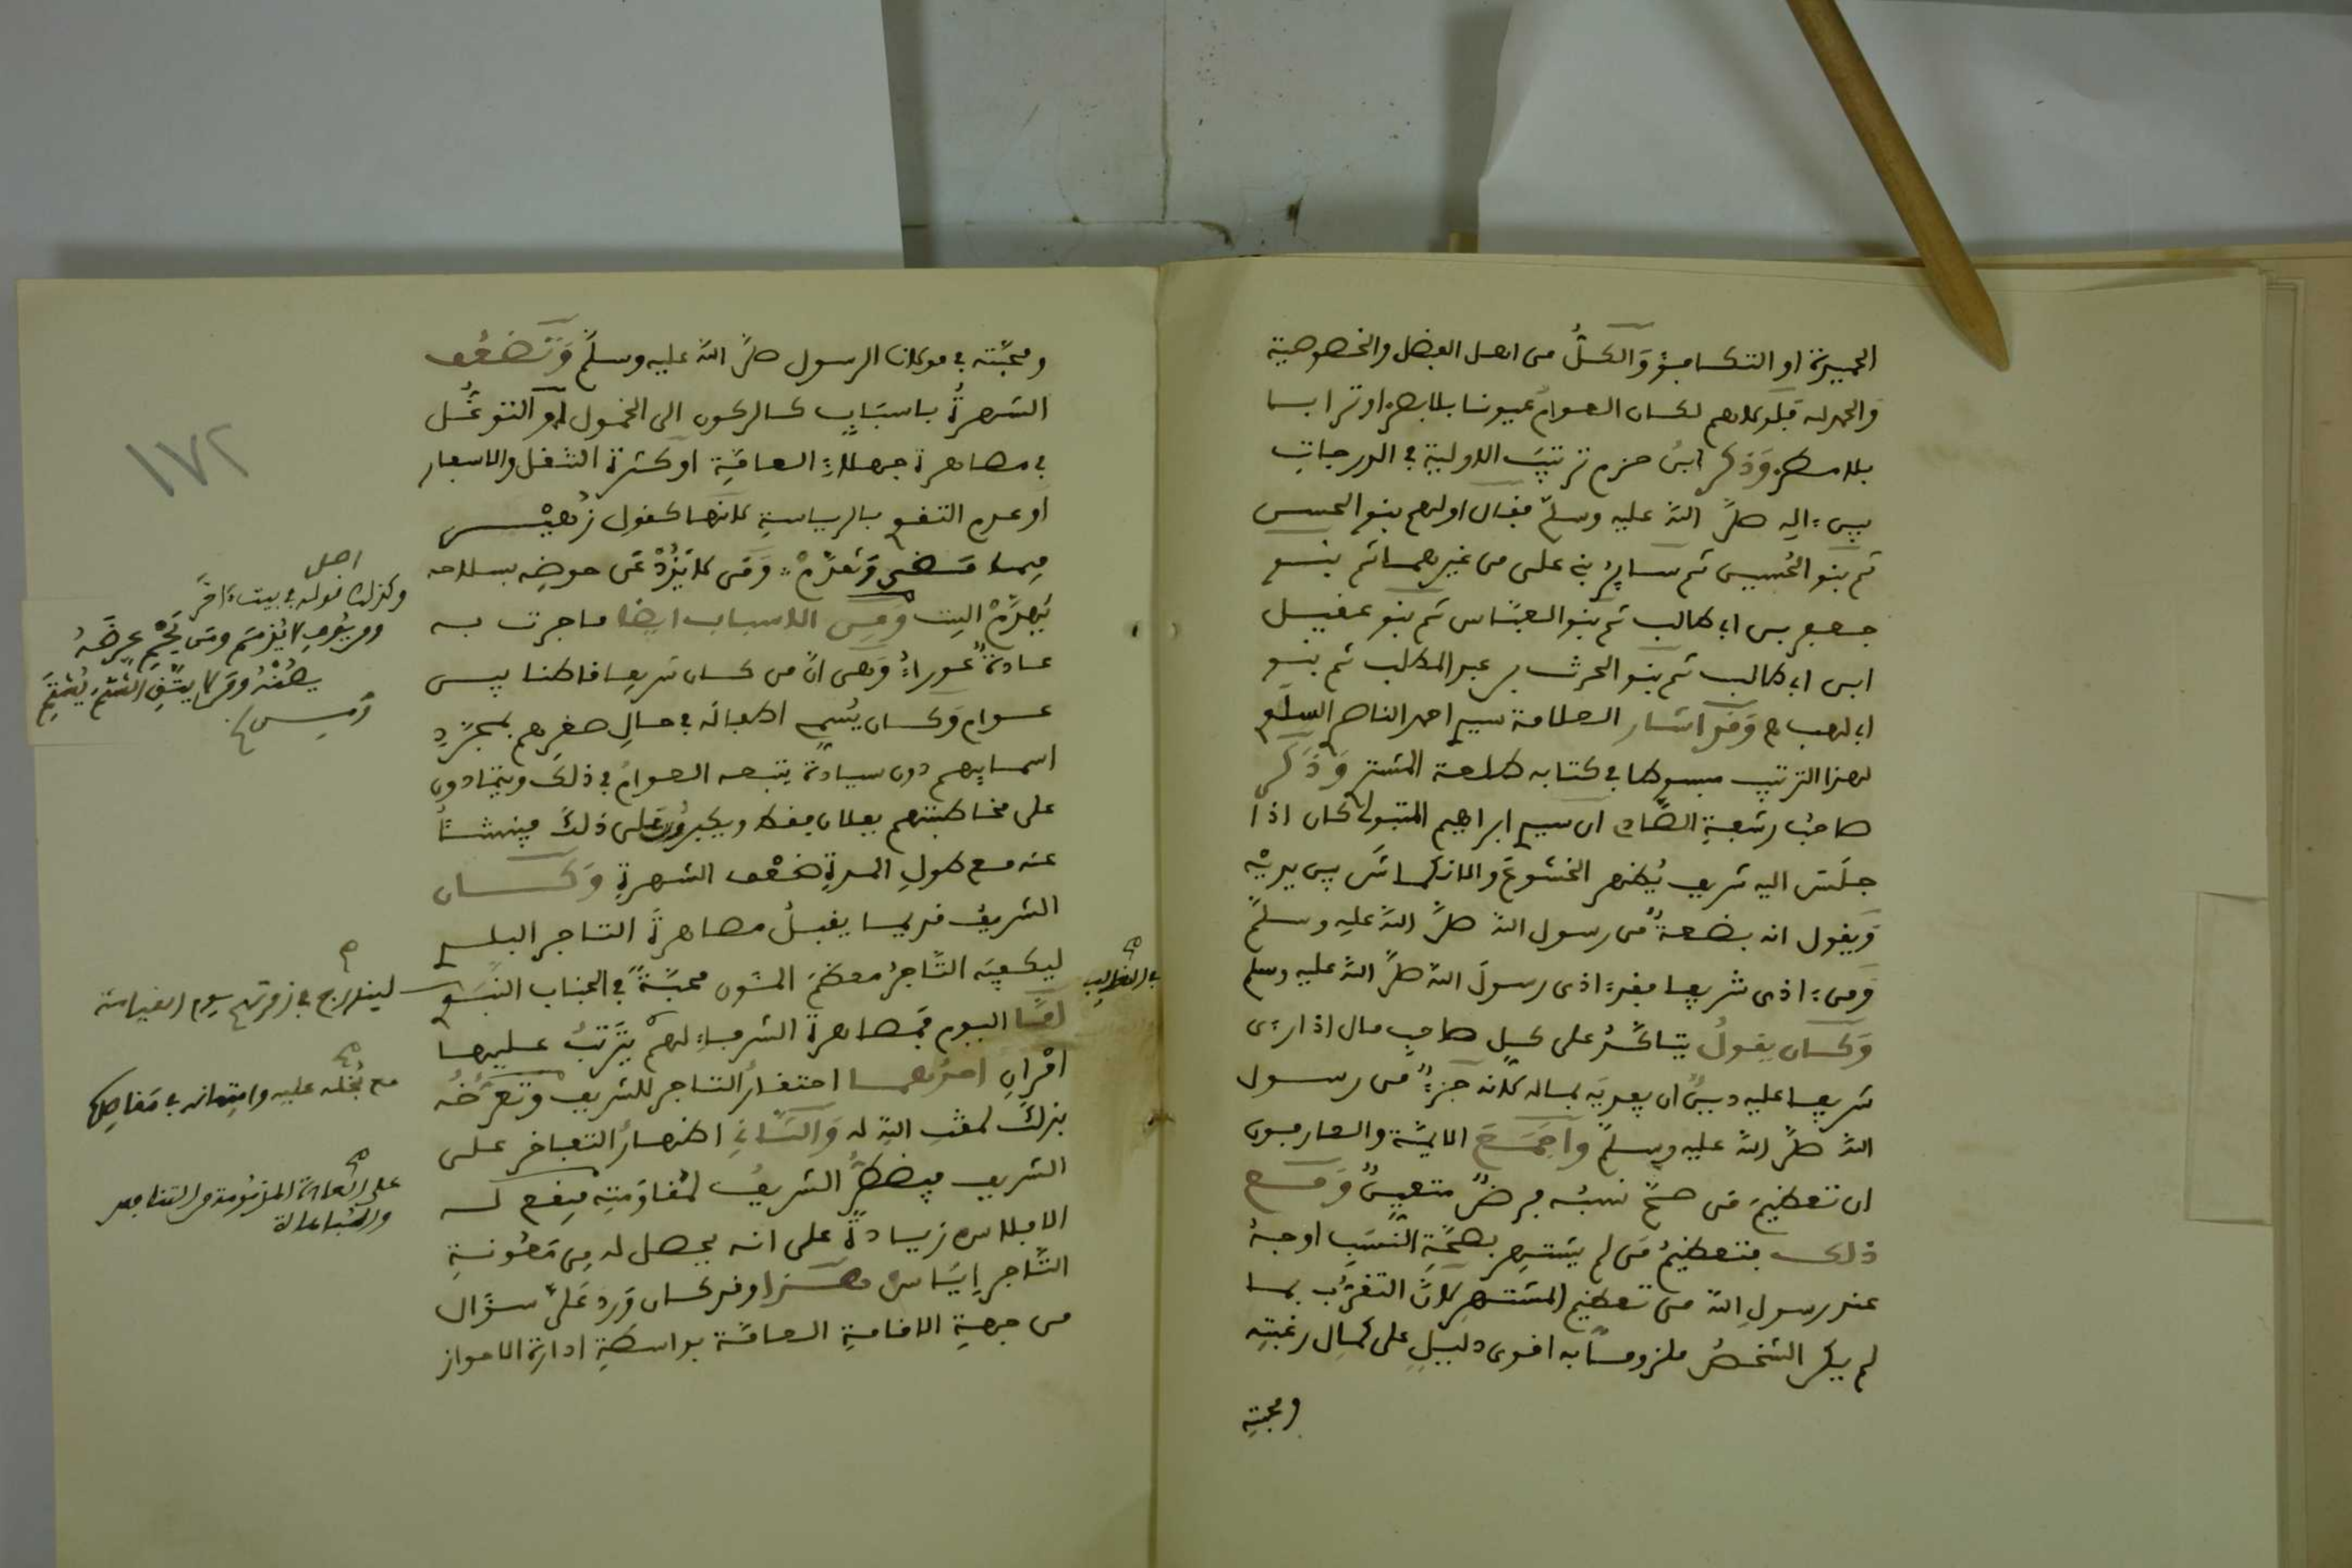 والكل من اهل الفضل والخصوصية
والحمد لله فلولاهم لكان العوام عيونا بلا بصر او ترابا
بلا مطر وذكر ابن حزم ترتيب الاولية في الدرجات
بين ءاله صلى الله عليه وسلم فقال اولهم بنو الحسن
ثم بنو الحسين ثم ساير بني علي من غيرهما ثم بنو
جعفر بن ابي طالب ثم بنو العباس ثم بنو عقيل
ابن ابي طالب ثم بنو الحرث بن عبد المطلب ثم بنو
ابي لهب وقد اشار العلامة سيدي احمد الناصر السلوي
لهذا الترتيب مبسوطا في كتابه طلعة المشتري وذكر
صاحب رشفة الصادي ان سيدي ابراهيم المتبولي كان اذا
جلس اليه شريف يظهر الخشوع والانكماش بين يديه
ويقول انه بضعة من رسول الله صلى الله عليه وسلم
ومن ءاذى شريفا فقد ءاذى رسول الله صلى الله عليه وسلم
وكان يقول يتاكد على كل صاحب مال اذا رءى
شريفا عليه دين ان يفديه بماله لانه جزء من رسول
الله صلى الله عليه وسلم واجمع الايمة والعارفون
ان تعظيم من صح نسبه فرض متعين ومع
ذلك فتعظيم من لم يشتهر بصحة النسب اوجه
عند رسول الله من تعظيم المشتهر لان التقرب بما
لم يكن الشخص ملزوما به اقوى دليل على كمال رغبته
ومحبته
ومحبته في مولانا الرسول صلى الله عليه وسلم وتضعف
الشهرة باسباب كالركون الى الخمول او التوغل
في مصاهرة جهلاء العامة او كثرة التنقل والاسفار
او عدم التقوي بالرياسة لانها كقول زهير
فيما مضى وتقدم ومن لا يذد عن حوضه بسلاحه
يهدم البيت ومن الاسباب ايضا ما جرت به
عادة عوراء وهي ان من كان شريفا قاطنا بين
عوام وكان يسمي اطفاله في حال صغرهم بمجرد
اسمايهم دون سيادة يتبعه العوام في ذلك ويتمادون
على مخاطبتهم بفلان فقط ويكبرون على ذلك فينشأ
عنه مع طول المدة ضعف الشهرة وكان
الشريف قديما يقبل مصاهرة التاجر البلدي
ليكفيه التاجر معظم المئون محبة في الجناب النبوي
اما اليوم فمصاهرة الشرفاء لهم يترتب عليها
امران احدهما احتقار التاجر للشريف وتعرضه
بذلك لمقت الله له والثاني اظهار التفاخر على
الشريف فيضطر الشريف لمقاومته فيقع له
الافلاس زيادة على انه يحصل له من معونة
التاجر اياس هذا وقد كان ورد علي سؤال
من جهة الاقامة العامة بواسطة ادارة الاحواز
١٧٢
وكذلك قوله في بيت ءاخر
ومن لا يتق الشتم يشتم
في الغالب
ليندرج في زمرتهم يوم القيامة
مع بخله عليه وامتهانه في مفاصله
على العادة المذمومة من التفاخر
والمباهاة